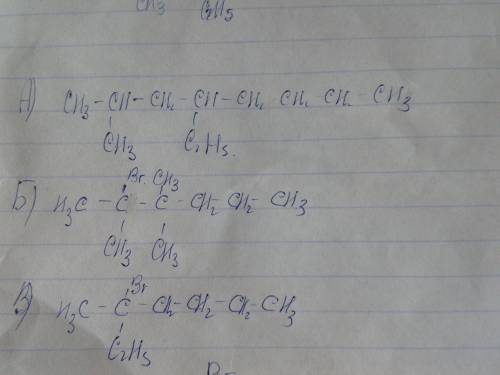 CH3 C2H5
А) CH3 - CH - CH2 - CH - CH2 CH2 CH2 - CH3
CH3 C2H5.
Br CH3
Б) H3C - C - C - CH2 - CH2 - CH3
CH3 CH3
Br
В) H3C - C - CH2 - CH2 - CH2 - CH3
C2H5
Br